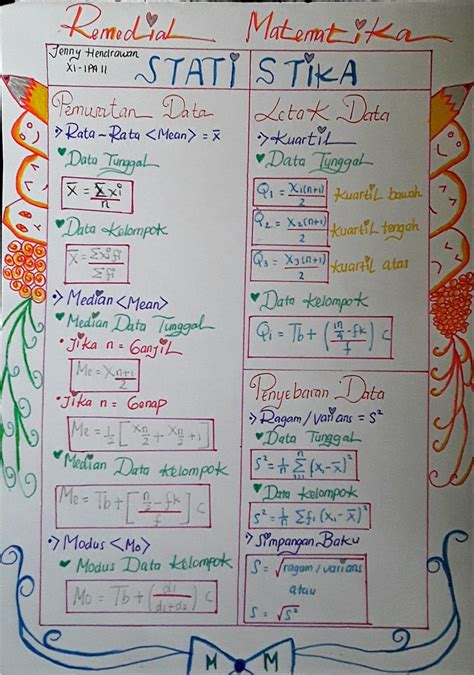 Remedial Matematika
Jenny Hendrawan
XI-IPA 11
STATISTIKA
Pemusatan Data
Rata-Rata <Mean> = x̄
Data Tunggal
x̄ = Σxi/n
Data Kelompok
x̄ = Σxifi/Σfi
Median <Mean>
Median Data Tunggal
• Jika n = Ganjil
Me = Xn+1/2
• Jika n = Genap
Me = 1/2 [Xn/2 + Xn/2+1]
Median Data Kelompok
Me = Tb + [(n/2 - fk)/f] C
Modus <Mo>
Modus Data Kelompok
Mo = Tb + (d1/(d1+d2)) C
Letak Data
Kuartil
Data Tunggal
Q1 = X1(n+1)/2 Kuartil bawah
Q2 = X2(n+1)/2 Kuartil tengah
Q3 = X3(n+1)/2 Kuartil atas
Data Kelompok
Qi = Tb + ((in/4 - fk)/f) C
Penyebaran Data
Ragam/varians = S²
Data Tunggal
S² = 1/n Σ (xi - x̄)²
Data Kelompok
S² = 1/n Σfi (xi - x̄)²
Simpangan Baku
S = √ragam/varians
atau
S = √S²
M M